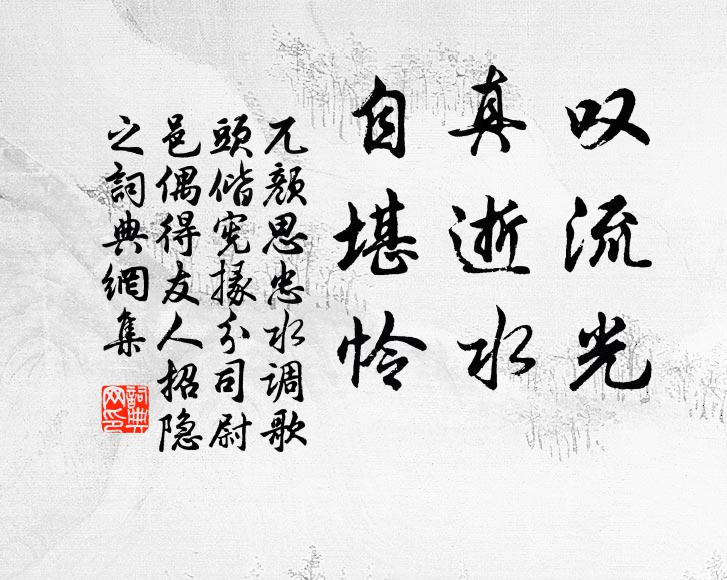 叹流光
真逝水
自堪怜
兀颜思忠水调歌
頭偕宪掾分司尉
邑偶得友人招隐
之詞典網集
詞典网印